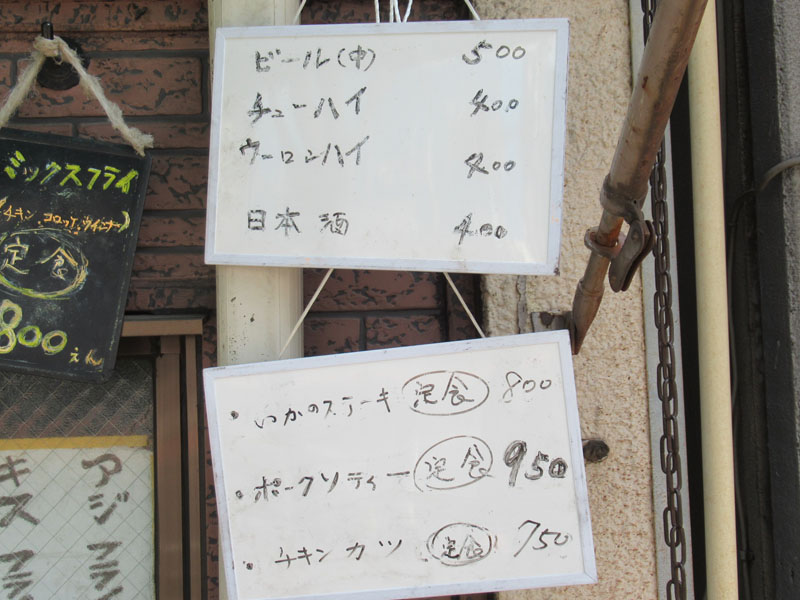 ビール(中) 500
チューハイ 400
ウーロンハイ 400
日本酒 400
・いかのステーキ 定食 800
・ポークソティー 定食 950
・チキンカツ 定食 750
ミックスフライ
(チキン.コロッケ.ウインナー)
定食
800えん
アジフラ
キスフラ